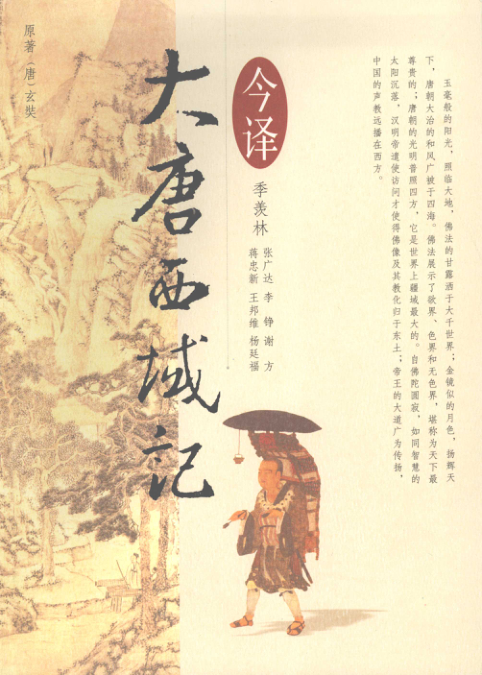 玉毫般的阳光，照临大地，佛法的甘露洒于大千世界；金镜似的月色，扬辉天
下，唐朝大治的和风广被于四海。佛法展示了欲界、色界和无色界，堪称为天下最
尊贵的；唐朝的光明普照四方，它是世界上疆域最大的。自佛陀圆寂，如同智慧的
太阳沉落，汉明帝遣使访问才使得佛像及其教化归于东土；帝王的大道广为传扬，
中国的声教远播在西方。
今译
季羡林
张广达 李 铮 谢 方
蒋忠新 王邦维 杨廷福
大唐西域记
原著（唐）玄奘